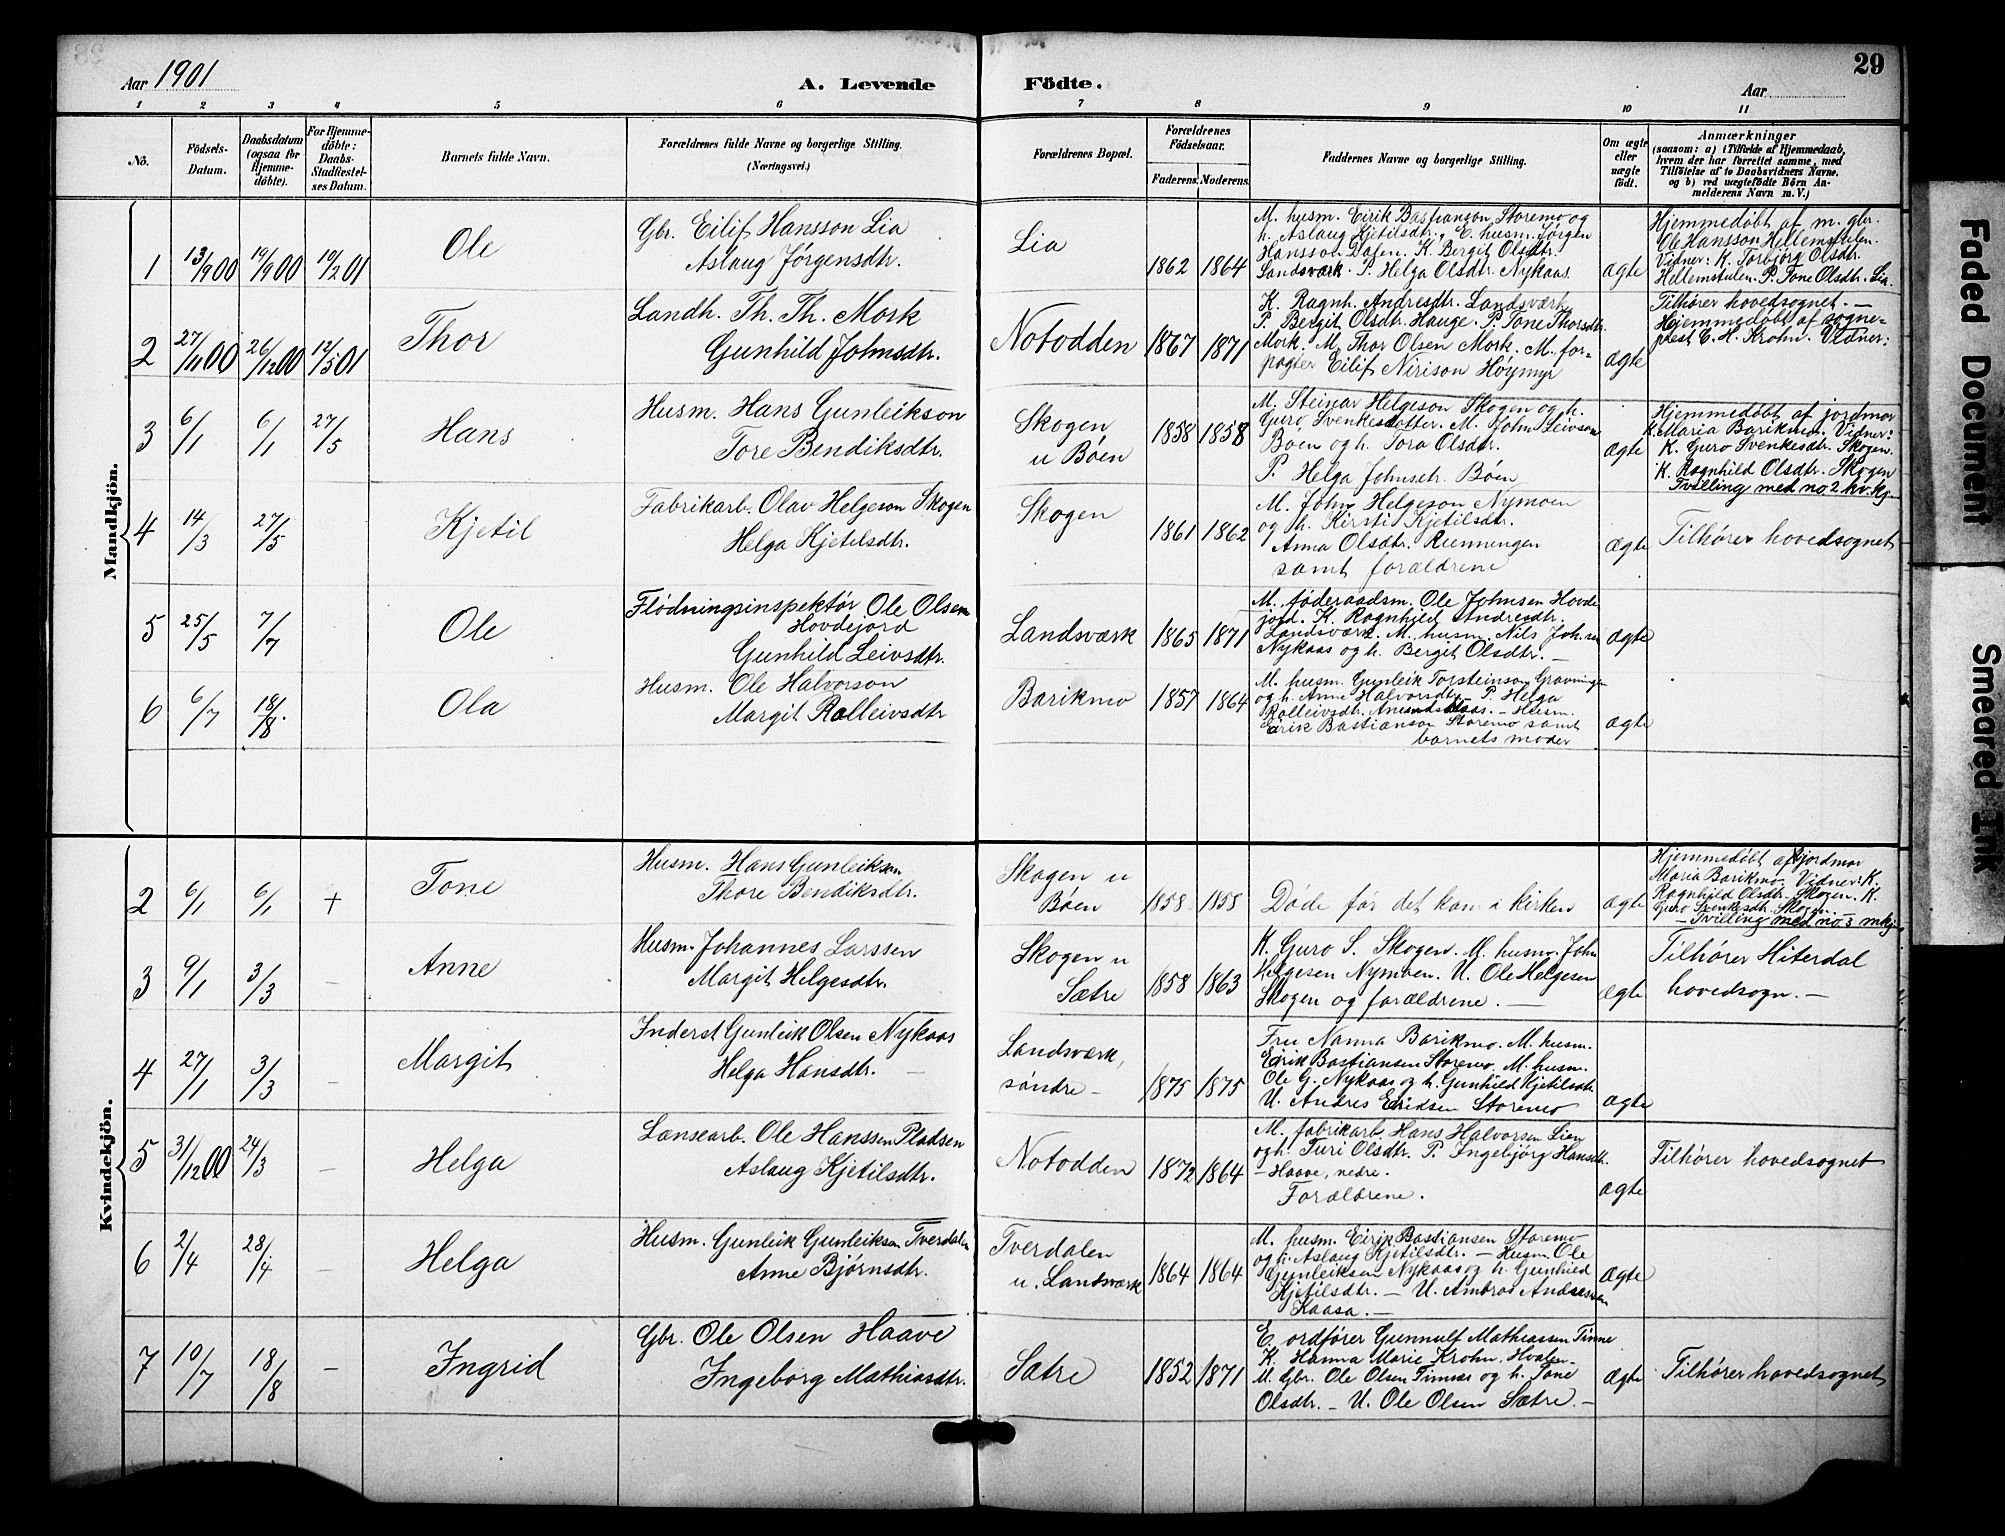 Aar 1901
A. Levende Födte.
Aar
29
1 2 3 4 5 6 7 8 9 10 11
No.
Födsels-Datum.
Daabsdatum (ogsaa for Hjemme-döbte).
For Hjemme-döbte: Daabs-Stadfæstel-ses Datum.
Barnets fulde Navn.
Forældrenes fulde Navne og borgerlige Stilling. (Næringsvei.)
Forældrenes Bopæl.
Forældrenes Födselsaar.
Faderens. Moderens.
Faddernes Navne og borgerlige Stilling.
Om ægte eller uægte födt.
Anmærkninger
(saasom: a) i Tilfælde af Hjemmedaab,
hvem der har forrettet samme, med
Tilföielse af to Daabsvidners Navne,
og b) ved uægtefödte Börn An-
melderens Navn m. V.)
Mandkjön.
1 13/9 00 19/9 00 10/2 01 Ole
Gbr. Eilif Hansson Lia
Aslaug Jörgensdtr.
Lia 1862 1864
M. husm. Eirik Bastianson Storemo og
h. Aslaug Kjetilsdtr. E. husm. Jørgen
Hansson Dalen. K. Bergit Olsdtr.
Landsværk. P. Helga Olsdtr. Nykaas.
ægte
Hjemmedøbt af m. gbr.
Ole Hansson Hellemstulen.
Vidner: K. Torbjørg Olsdtr.
Hellemstulen. P. Tone Olsdtr. Lia.
2 27/11 00 26/12 00 12/5 01 Thor
Landh. Th. Th. Mork
Gunhild Johnsdtr.
Notodden 1867 1871
K. Ragnh. Andresdtr. Landsværk
P. Bergit Olsdtr. Hauge. P. Tone Thorsdtr.
Mork. M. Thor Olsen Mork. M. for-
pagter Eilif Nirison Höymyr
ægte
Tilhører hovedsognet. —
Hjemmedøbt af sogne-
prest C. H. Krohn. Vidner:
3 6/1 6/1 27/5 Hans
Husm. Hans Gunleikson
Tore Bendiksdtr.
Skogen
u Böen 1858 1858
M. Steinar Helgeson Skogen og h.
Guro Svenkesdotter. M. John Leivson
Böen og h. Tora Olsdtr.
P. Helga Johnsdtr. Böen
ægte
Hjemmedøbt af jordmor
K. Maria Barikmo. Vidner:
K. Guro Svenkesdtr. Skogen.
K. Ragnhild Olsdtr. Skogen
Tvilling med no 2 kv. kj.
4 14/3 27/5 Kjetil
Fabrikarb. Olav Helgeson Skogen
Helga Kjetilsdtr.
Skogen 1861 1862
M. John Helgeson Nymoen
og h. Kirsti Kjetilsdtr.
Anna Olsdtr. Rienningen
samt forældrene
ægte
Tilhører hovedsognet
5 25/5 7/7 Ole
Flödningsinspektör Ole Olsen
Hovdejord
Gunhild Leivsdtr.
Landsværk 1865 1871
M. föderaadsm. Ole Johnsen Hovde
jord. K. Ragnhild Andresdtr.
Landsværk. M. husm. Nils Johnsen
Nykaas og h. Bergit Olsdtr. —
ægte
6 6/7 18/8 Ola
Husm. Ole Halvorson
Margit Rolleivsdtr
Barikmo 1857 1864
M. husm. Gunleik Torsteinson Gravningen
og h. Anne Halvorsdtr — P. Helga
Rolleivsdtr. Amundskaas. — Husm.
Eirik Bastianson Storemo samt
barnets moder
ægte
Kvindekjön.
2 6/1 6/1 + Tone
Husm. Hans Gunleikson
Thore Bendiksdtr.
Skogen u
Böen 1858 1858
Døde før det kom i kirken
ægte
Hjemmedøbt af jordmor
Maria Barikmo. Vidner: K.
Ragnhild Olsdtr. Skogen. K.
Guro Svenkesdtr. Skogen. —
— Tvilling med no 3 mkj.
3 9/1 3/3 – Anne
Husm. Johannes Larssen
Margit Helgesdtr.
Skogen u
Sætre 1858 1863
K. Guro S. Skogen. M. husm. John
Helgesen Nymoen. U. Ole Helgesen
Skogen og forældrene. —
ægte
Tilhører Hiterdal
hovedsogn. —
4 27/1 3/3 – Margit
Inderst Gunleik Olsen Nykaas
Helga Hansdtr. —
Landsværk,
söndre – 1875 1875
Fru Nanna Barikmo. M. husm.
Eirik Bastiansen Storemo. M. husm.
Ole G. Nykaas og h. Gunhild Kjetilsdtr.
U. Andres Eriksen Storemo
ægte
5 31/12 00 24/3 – Helga
Lænsearb. Ole Hanssen Pladsen
Aslaug Kjetilsdtr.
Notodden 1872 1864
M. fabrikarb. Hans Halvorsen Lien
og h. Turi Olsdtr. P. Ingebjörg Hansdtr.
– Haave, nedre.
Forældrene.
ægte
Tilhører hovedsognet
6 2/4 28/4 – Helga
Husm. Gunleik Gunleiksen Tverdalen
Anne Bjørnsdtr.
Tverdalen
u. Landsværk 1864 1864
M. husm. Eirik Bastiansen Storemo
og h. Aslaug Kjetilsdtr. — Husm. Ole
Gunleiksen Nykaas og h. Gunhild
Kjetilsdtr. — U. Ambros Andressen
Kaasa. —
ægte
7 10/7 18/8 – Ingrid
Gbr. Ole Olsen Haave
Ingeborg Mathiasdtr.
Sætre 1852 1871
E. ordfører Gunnulf Mathiassen Tinne
K. Hanna Marie Krohn, Hvalen
M. Gbr. Ole Olsen Tinnes og h. Tone
Olsdtr. — U. Ole Olsen Sætre. —
ægte
Tilhører hovedsognet
Faded Document
Smeared Ink